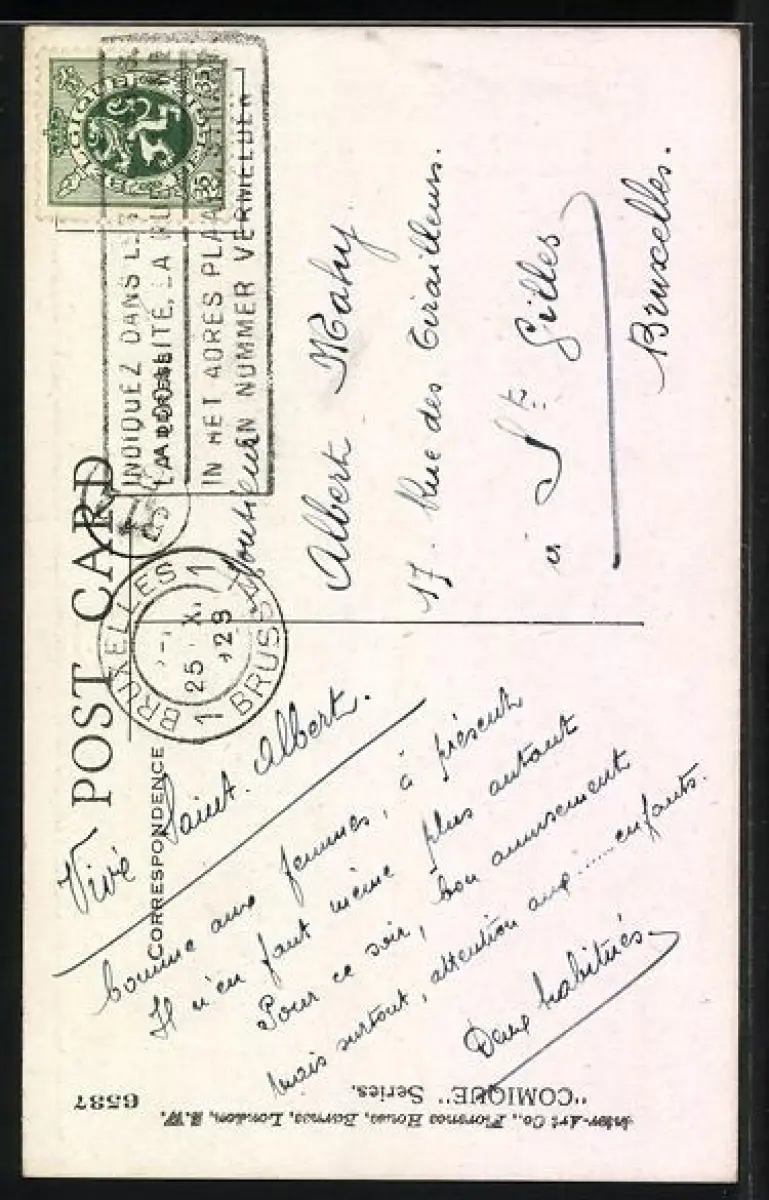 POST CARD
CORRESPONDENCE
BELGIQUE
35 35
INDIQUEZ DANS L
LA RUE
IN HET ADRES PLAA
EN NUMMER VERMELDEN
BRUXELLES 1
25 XI
29
1 BRUSSEL
Monsieur
Albert Mahy
17. Rue des Tirailleurs.
à St Gilles
Bruxelles.
Vive Saint. Albert.
Comme aux femmes, à présent
Il n'en faut même plus autant
Pour ce soir, bon amusement
mais surtout, attention aux ...... enfants.
Deux habitués
"COMIQUE" Series.
Inter-Art Co., Florence House, Barnes, London, S.W.
6587